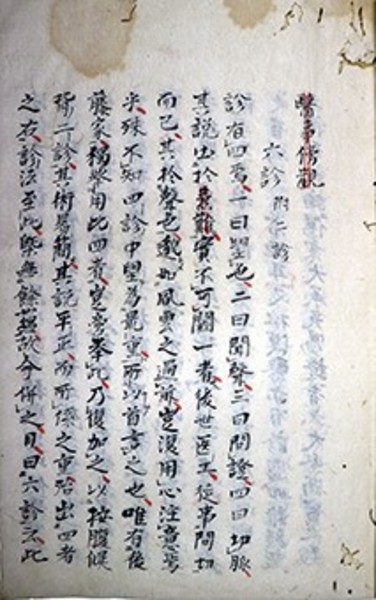 醫事傍觀
六診 附二診
診有四焉一曰望色二曰聞聲三曰問證四曰切脈
其說出於素難實不可闕一者後世医工從事問切
而已其於聲色邈如風雲之過前豈復用心注意焉
乎殊不知四診中望為最重所以首言之也唯有後
藤家獨擧用此四者皇奉此乃復加之以按腹候
二診其術畧簡其說平正而所係之重殆出四者
之右診法至此無餘蘊故今併之目曰六診云此